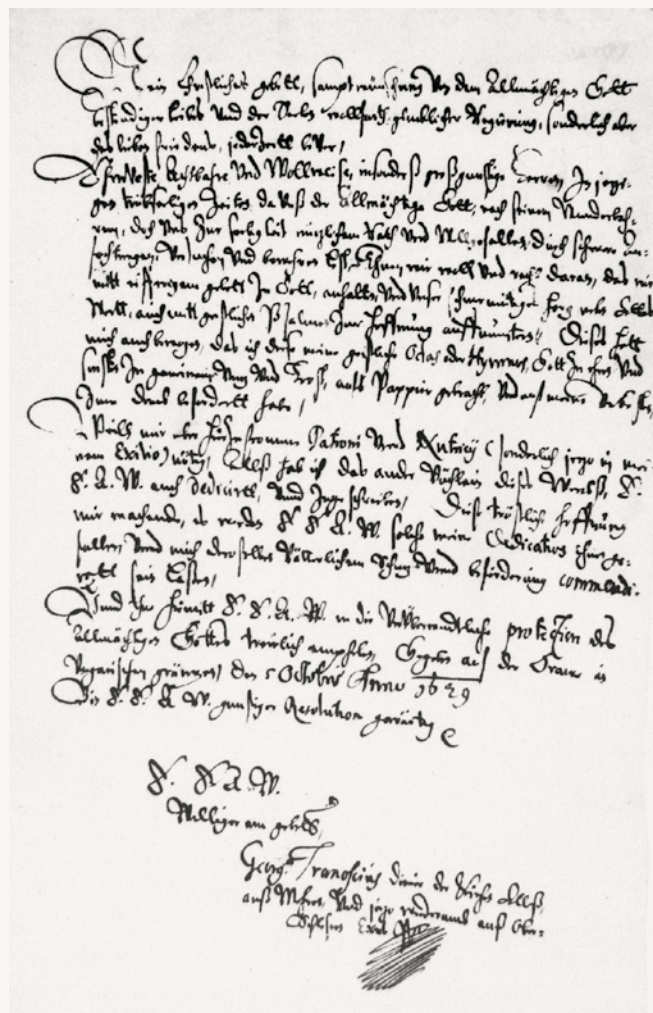 Mein Christliches gebett, sampt wünschung von dem Allmächtigen Gott
bestendiger leibes Vnd der Seelen wolfart, glücklicher Regierung, sonderlich aber
des lieben friedens, jederzeit bevor,
Ehrnveste Achtbahre Vnd Wollweise, insonders großgünstige Herren, In jezi-
gen trübseligen Zeiten, da Vnß der Allmächtige Gott, nach seinem Wunderbah-
ren, doch Vns Zur seeligkeit nüzlichem Rath Vnd Wollgefallen, durch schwere An-
fechtungen, Versuchen Vnd bewehren lest, Thun wir woll Vnd recht daran, das wir
mitt eiffrigem gebett Zu Gott, anhalten, Vnd Vnser schwermütiges herz nebe Gottes
Wort, auch mitt geistlichen Psalmen Zur hoffnung auffmuntern. Dieses hatt
mich auch bewogen, das ich diese meine geistliche Odas oder Hymnos, Gott Zu ehren Vnd
Zu gemeinem Vnd Trost, aufs Pappier gebracht, Vnd auf meine
Zum druck befördert habe,
Weill mir aber fromme Patroni Vnd (sonderlich jezo in mei-
nem Exilio) nötig, Allß hab ich das ander Büchlein dises Wercks, E.
E. A. W. auch dediciert, Vnnd Zugeschrieben, Diese tröstliche hoffnung
mir machende, es werden E E A. W. solche meine Dedication ihnen ge-
fallen, Vnnd mich deroselben Vätterlichem Schuz Vnnd beförderung commendi-
rett sein lassen,
Vnd thu hiemitt E. E. A. W. in die protection des
Allmächtigen Gottes treulich empfehlen, Gegeben auf der Orawa in
Vngarischen gränzen, den 5 Octobris Anno 1629
Die E. E. A W. günstiger Resolution gewärtig
E. E A. W.
Williger am gebett,
Georg. Tranoscius diener der Kirchen
auß Mhren, Vnd jezo auß Ober-
Schlesien Exul